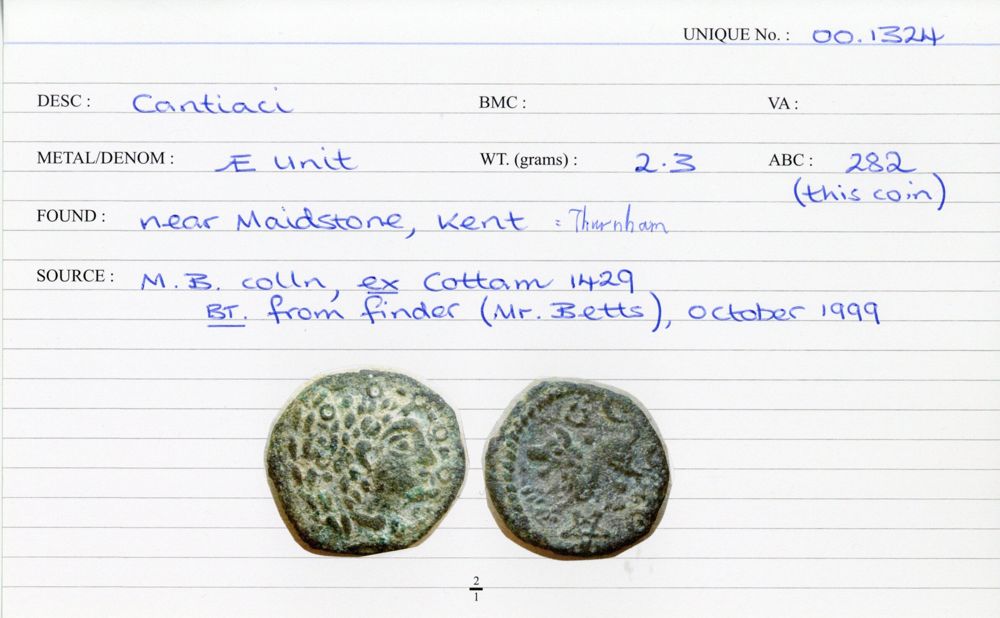 UNIQUE No. : 00.1324
DESC : Cantiaci BMC : VA :
METAL/DENOM : Æ Unit WT. (grams) : 2.3 ABC : 282
(this coin)
FOUND : near Maidstone, Kent : Thurnham
SOURCE : M.B. colln, ex Cottam 1429
BT. from finder (Mr. Betts), October 1999
2
1